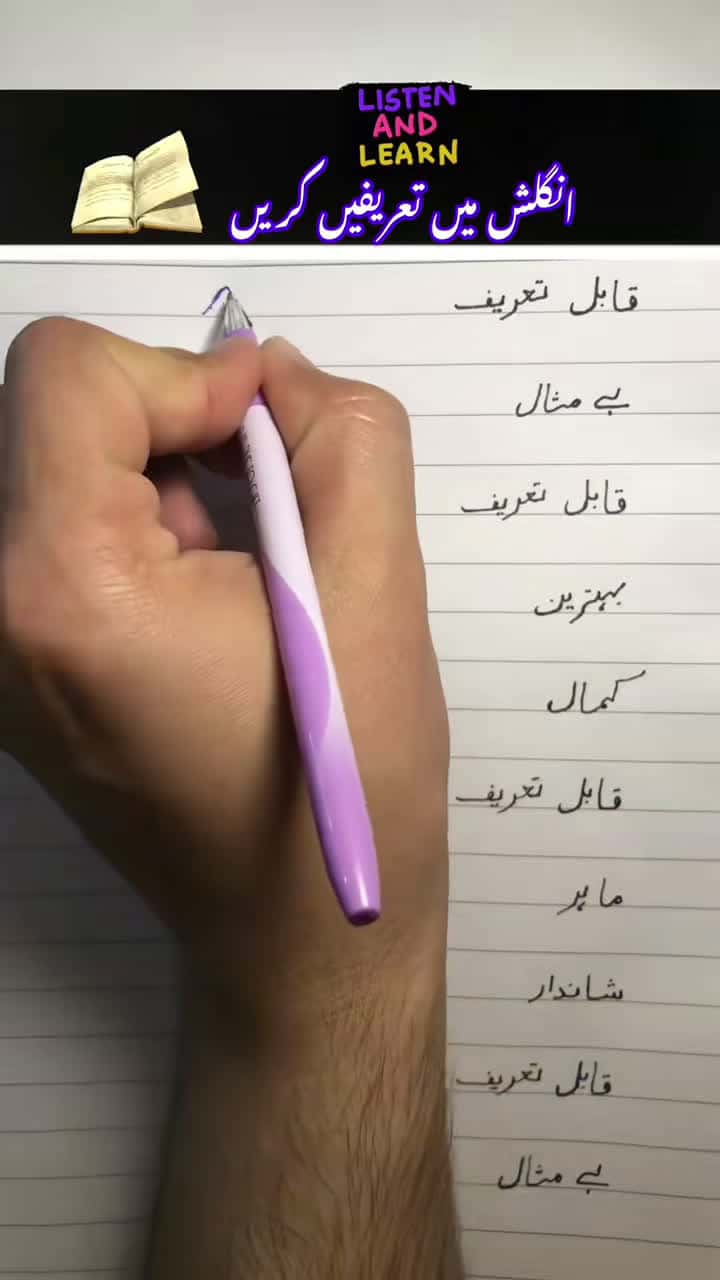 LISTEN
AND
LEARN
انگلش میں تعریفیں کریں
قابل تعریف
بے مثال
قابل تعریف
بہترین
کمال
قابل تعریف
ماہر
شاندار
قابل تعریف
بے مثال